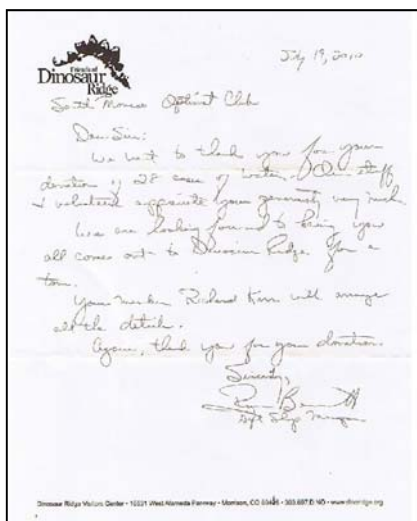 Friends of
Dinosaur
Ridge
July 19, 2010
South Monroe Optimist Club
Dear Sirs:
We want to thank you for your
donation of 28 cases of water. Our staff
& volunteers appreciate your generosity very much.
We are looking forward to having you
all come out to Dinosaur Ridge for a
tour.
Your member Richard will arrange
all the details.
Again, thank you for your donation.
Sincerely,
Bennett
Gift Shop Manager
Dinosaur Ridge Visitors Center • West Alameda Parkway • Morrison, CO • www.dinoridge.org